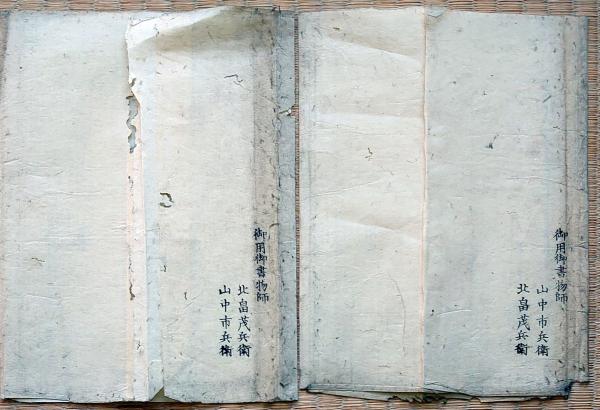 御用御書物師
山中市兵衛
北畠茂兵衛
御用御書物師
北畠茂兵衛
山中市兵衛